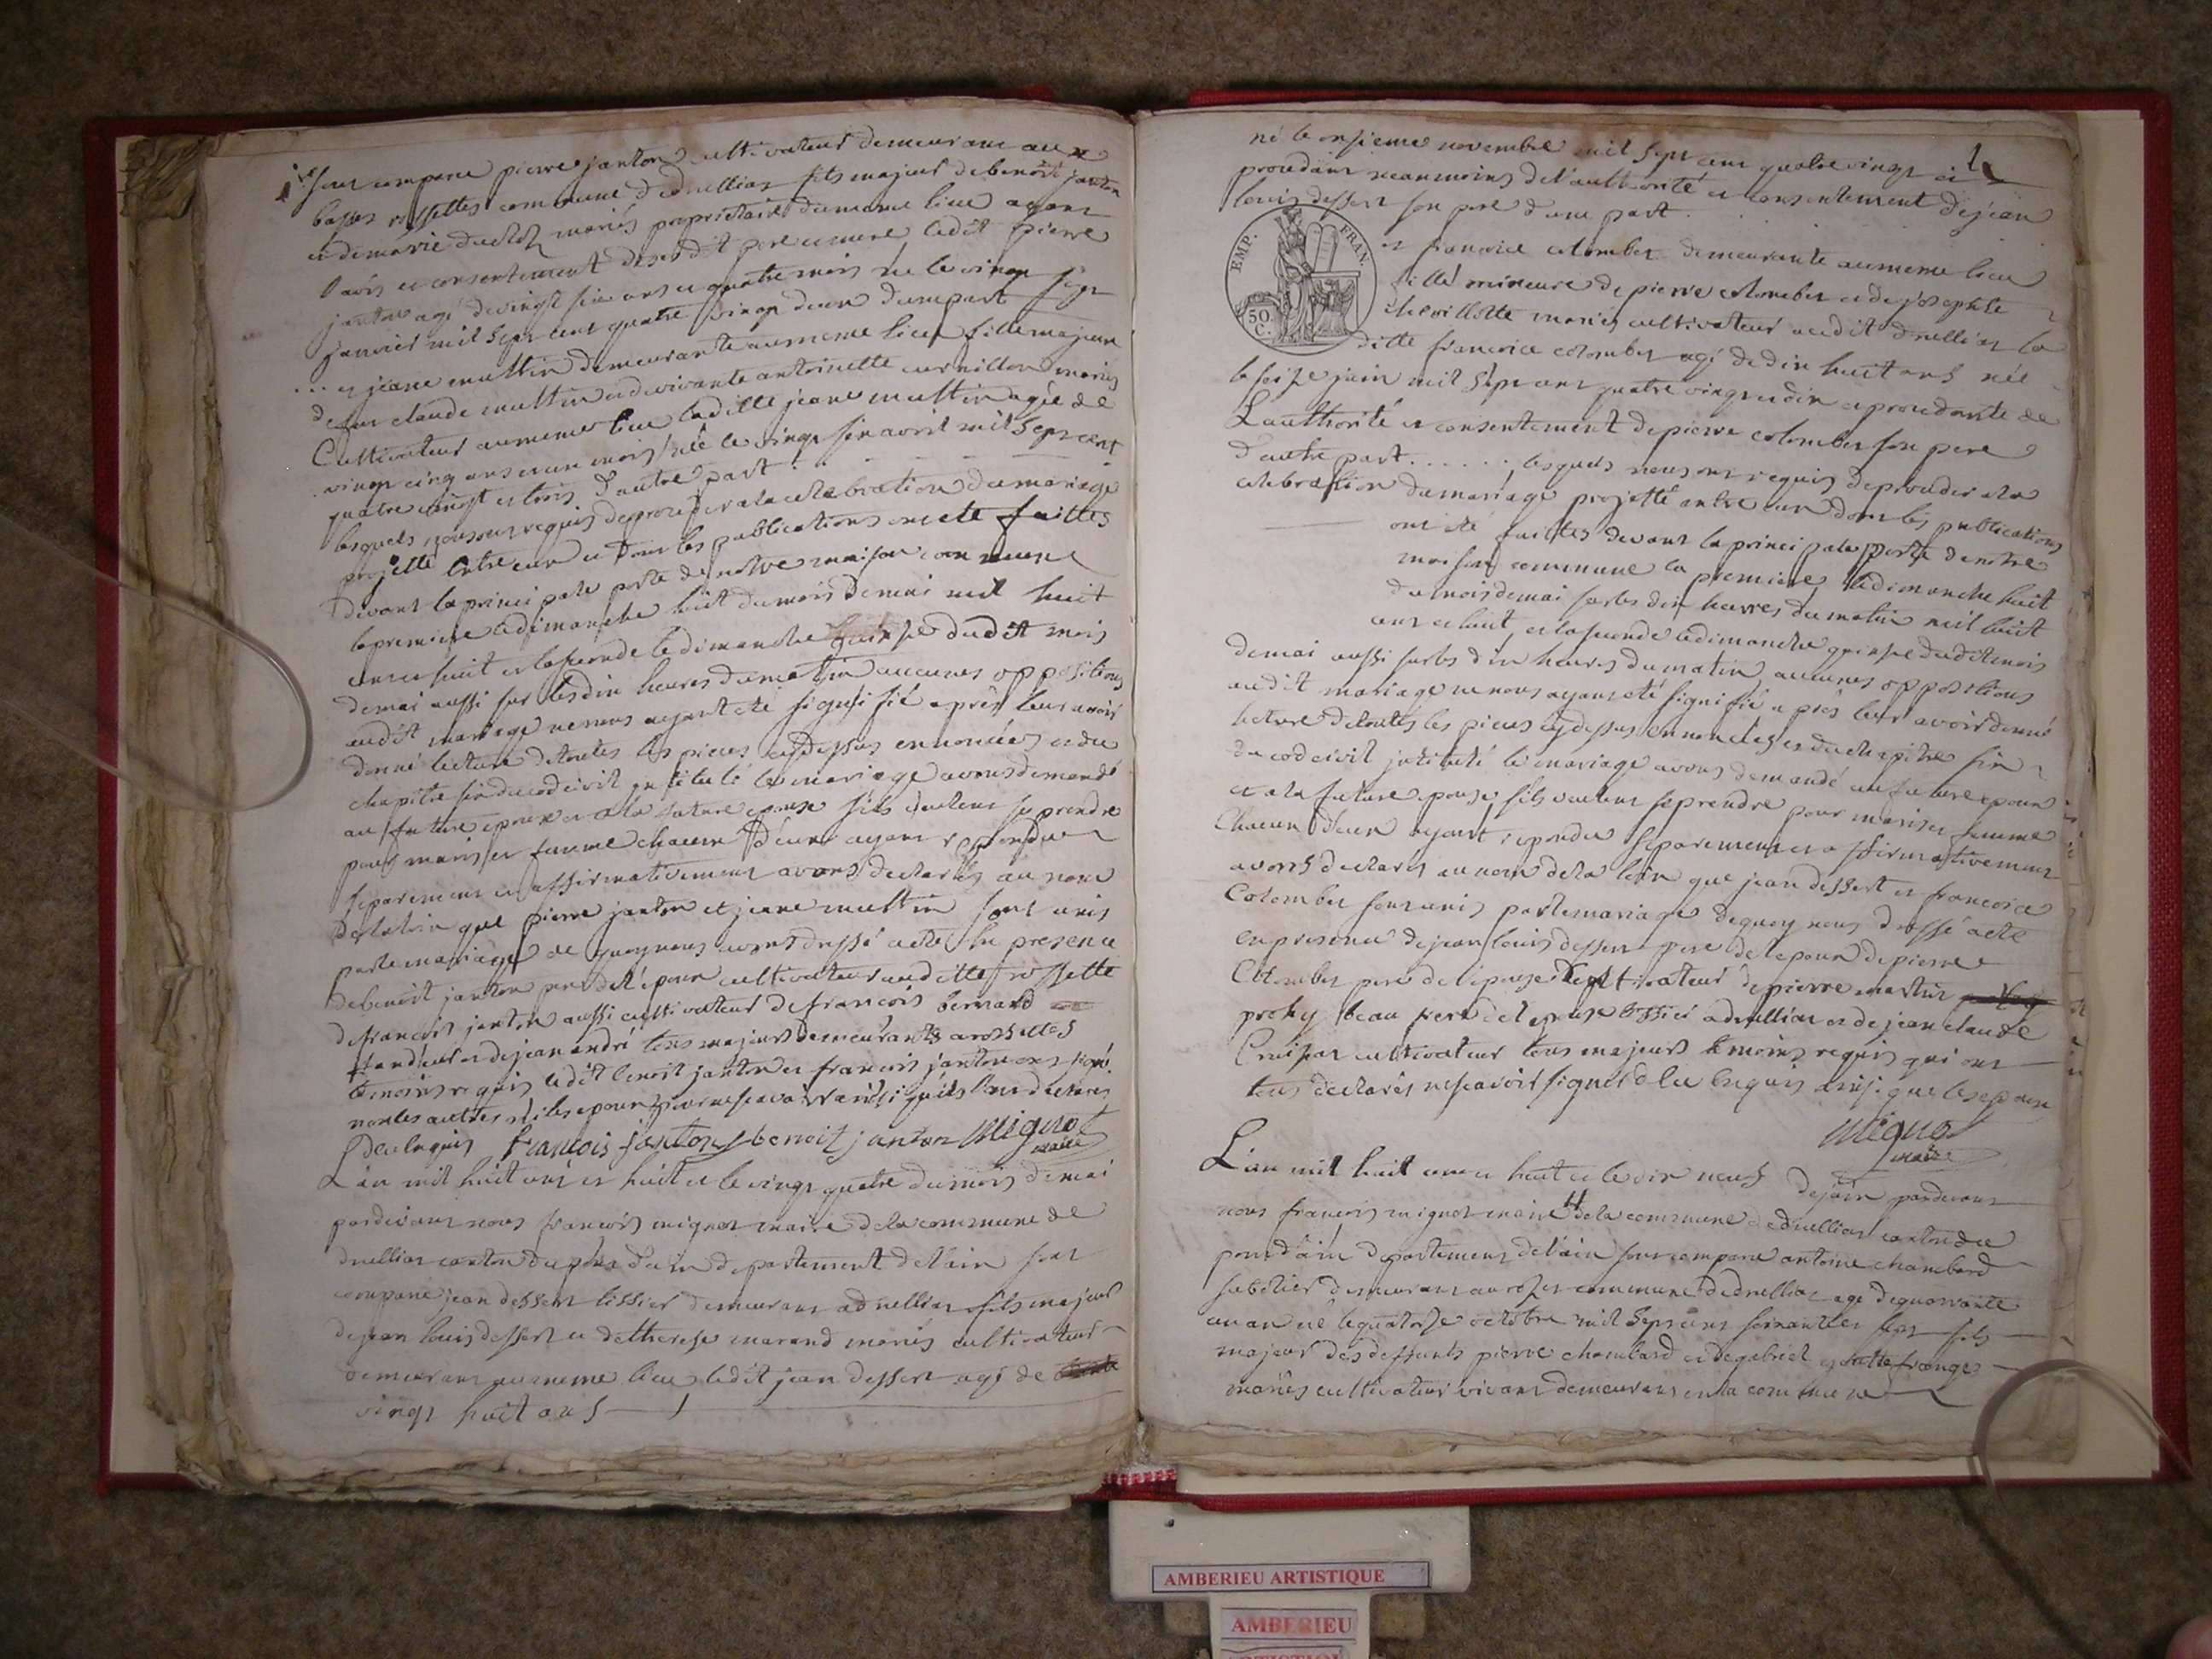 sont comparu pierre janton cultivateur demeurant aux
basses rossettes commune de druillias fils majeur de benoit janton
et de marie duclos mariés propriétaires du meme lieu ayant
l'avis et consentement de sesdit pere et mere ledit pierre
janton agé de vingt six ans et quatre mois né le vingt sept
janvier mil sept cent quatre vingt deux d'une part
... et jeane muttin demeurante au meme lieu fille majeure
de feu claude muttin et de vivante antoinette cornillon mariés
Cultivateur au meme lieu ladille jeane muttin agée de
vingt cinq ans et un mois née le vingt six avril mil sept cent
quatre vingt et trois d'autre part
lesquels nous ont requis de proceder a la celebration du mariage
projetté entre eux et dont les publications ont eté faittes
devant la principale porte de notre maison commune
la premiere le dimanche huit du mois de mai mil huit
cent et huit et la seconde le dimanche quinse dudit mois
de mai aussi sur les dix heures du matin aucunes oppositions
audit mariage ne nous ayant eté signifié apres leur avoir
donné lecture de toutes les pieces cydessus ennoncées et du
chapitre six du code civil intitulé le mariage avons demandé
au future epoux et a la future epouse sils veulent se prendre
pour maris et femme chacun d'eux ayant repondu
separement et affirmativement avons declarés au nom
de la loix que pierre janton et jeane muttin sont unis
par le mariage de quoy nous avons dressé acte en presence
de benoit janton pere de l'epoux cultivateur auditte rossette
de francois janton aussi cultivateur de francois bernard
et de jean andré tous majeurs demeurants a rossettes
temoins requis ledit benoit janton et francois janton ont signé
non les autres ni les epoux pour ne scavoir ainsi quils l'ont declarés
de ce enquis francois janton benoit janton Mignot
maire
L'an mil huit cent et huit et le vingt quatre du mois de mai
pardevant nous francois mignot maire de la commune de
druillias canton du pont d'ain departement de l'ain sont
comparu jean dessert tissier demeurant a druillias fils majeur
de jean louis dessert et de therese marand mariés cultivateur
demeurant au meme lieu ledit jean dessert agé de
vingt huit ans
né le onsieme novembre mil sept cent quatre vingt et
procedant neanmoins de l'authorité et consentement de jean
louis dessert son pere d'une part
EMP. FRAN.
50 C.
et francoise colomber demeurante au meme lieu
fille mineure de pierre colomber et de josephte
chevillotte mariés cultivateur audit druillias la
ditte francoise colomber agé de dix huit ans née
le seize juin mil sept cent quatre vingt et dix et procedante de
L'authorité et consentement de pierre colomber son pere
d'autre part . . . . . . lesquels nous ont requis de proceder a la
celebration du mariage projetté entre eux dont les publications
ont eté faittes devant la principale porte de notre
maison commune la premiere le dimanche huit
du mois de mai sur les dix heures du matin mil huit
cent et huit et la seconde le dimanche quinse dudit mois
de mai aussi sur les dix heures du matin aucunes oppositions
audit mariage ne nous ayant eté signifié apres leur avoir donné
lecture de toutes les pieces cydessus ennoncées et du chapitre six
du code civil intitulé le mariage avons demandé au future epoux
et a la future epouse sils veulent se prendre pour maris et femme
Chacun d'eux ayant repondu separement et affirmativement
avons declarés au nom de la loix que jean dessert et francoise
Colomber sont unis par le mariage de quoy nous dressé acte
en presence de jean louis dessert pere de l'epoux de pierre
Colomber pere de l'epouse cultivateur de pierre martin
beau frere de l'epouse tissier a druillias et de jean claude
cultivateur tous majeurs temoins requis qui ont
tous declarés ne scavoir signer de ce enquis ainsi que les epoux
Mignot
maire
L'an mil huit cent et huit et le dix neuf de juin pardevant
nous francois mignot maire de la commune de druillias canton du
pont d'ain departement de l'ain sont comparu antoine chambard
sabotier demeurant au commune de druillias agé de quarante
un an né le quatorze octobre mil sept cent soixante et six fils
majeur des deffunts pierre chambard et de
mariés cultivateur vivant demeurant en la commune
AMBERIEU ARTISTIQUE
AMBERIEU